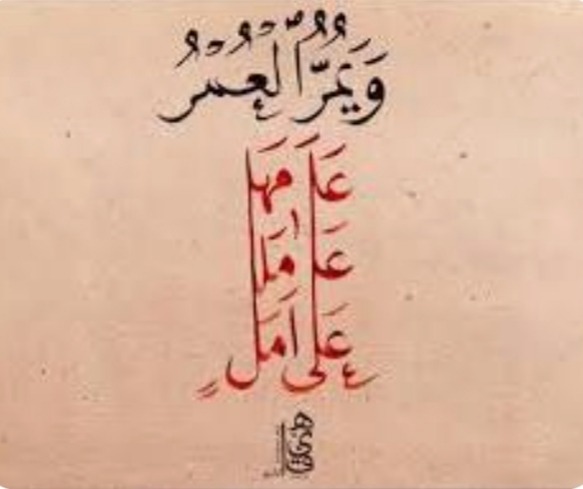 وَيَمُرُّ العُمُرُ
عَلَى مَهَلٍ
عَلَى مَلَلٍ
عَلَى أَمَلٍ